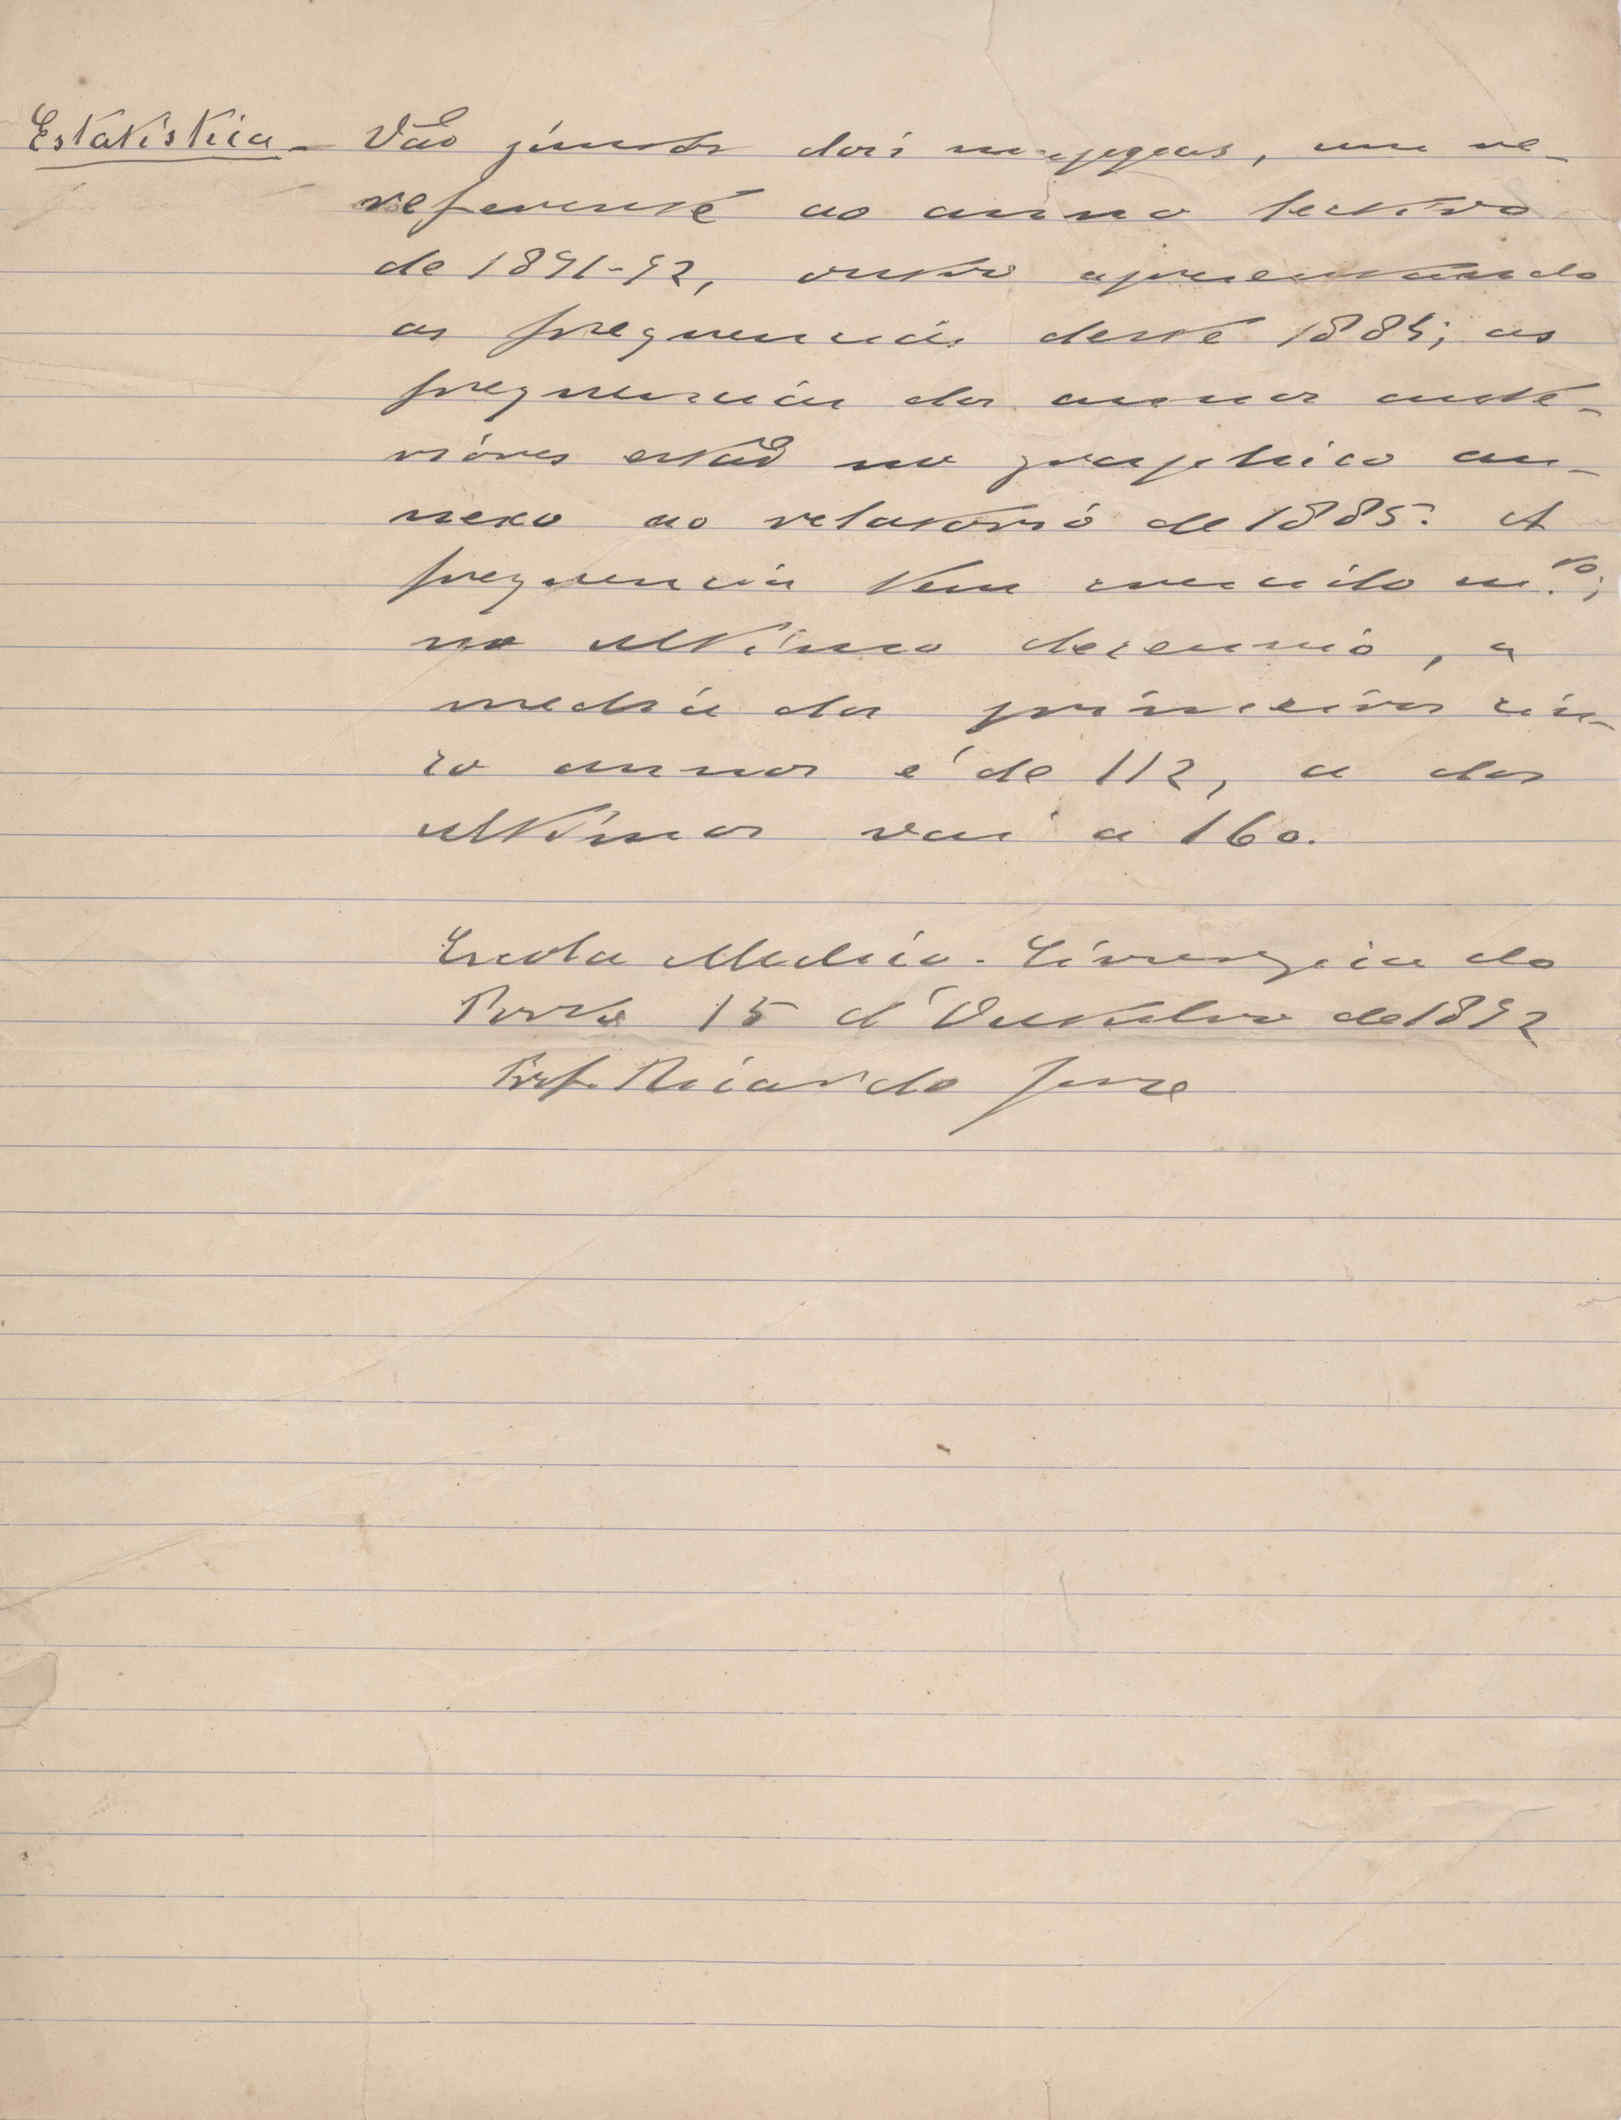 Estatistica - Vão juntos dois mappas, um re-
referente ao anno lectivo
de 1891-92, outro apresentando
as frequencias deste 1885; as
frequencias dos annos ante-
riores estaõ no graphico an-
nexo ao relatorio de 1885. A
frequencia tem crescido m.to;
no ultimo decennio, a
media dos primeiros cin-
co annos é de 112, a dos
ultimos vai a 160.
Escola Medico-Cirurgica do
Porto 15 d'Outubro de 1892
Prof. Ricardo Jorge